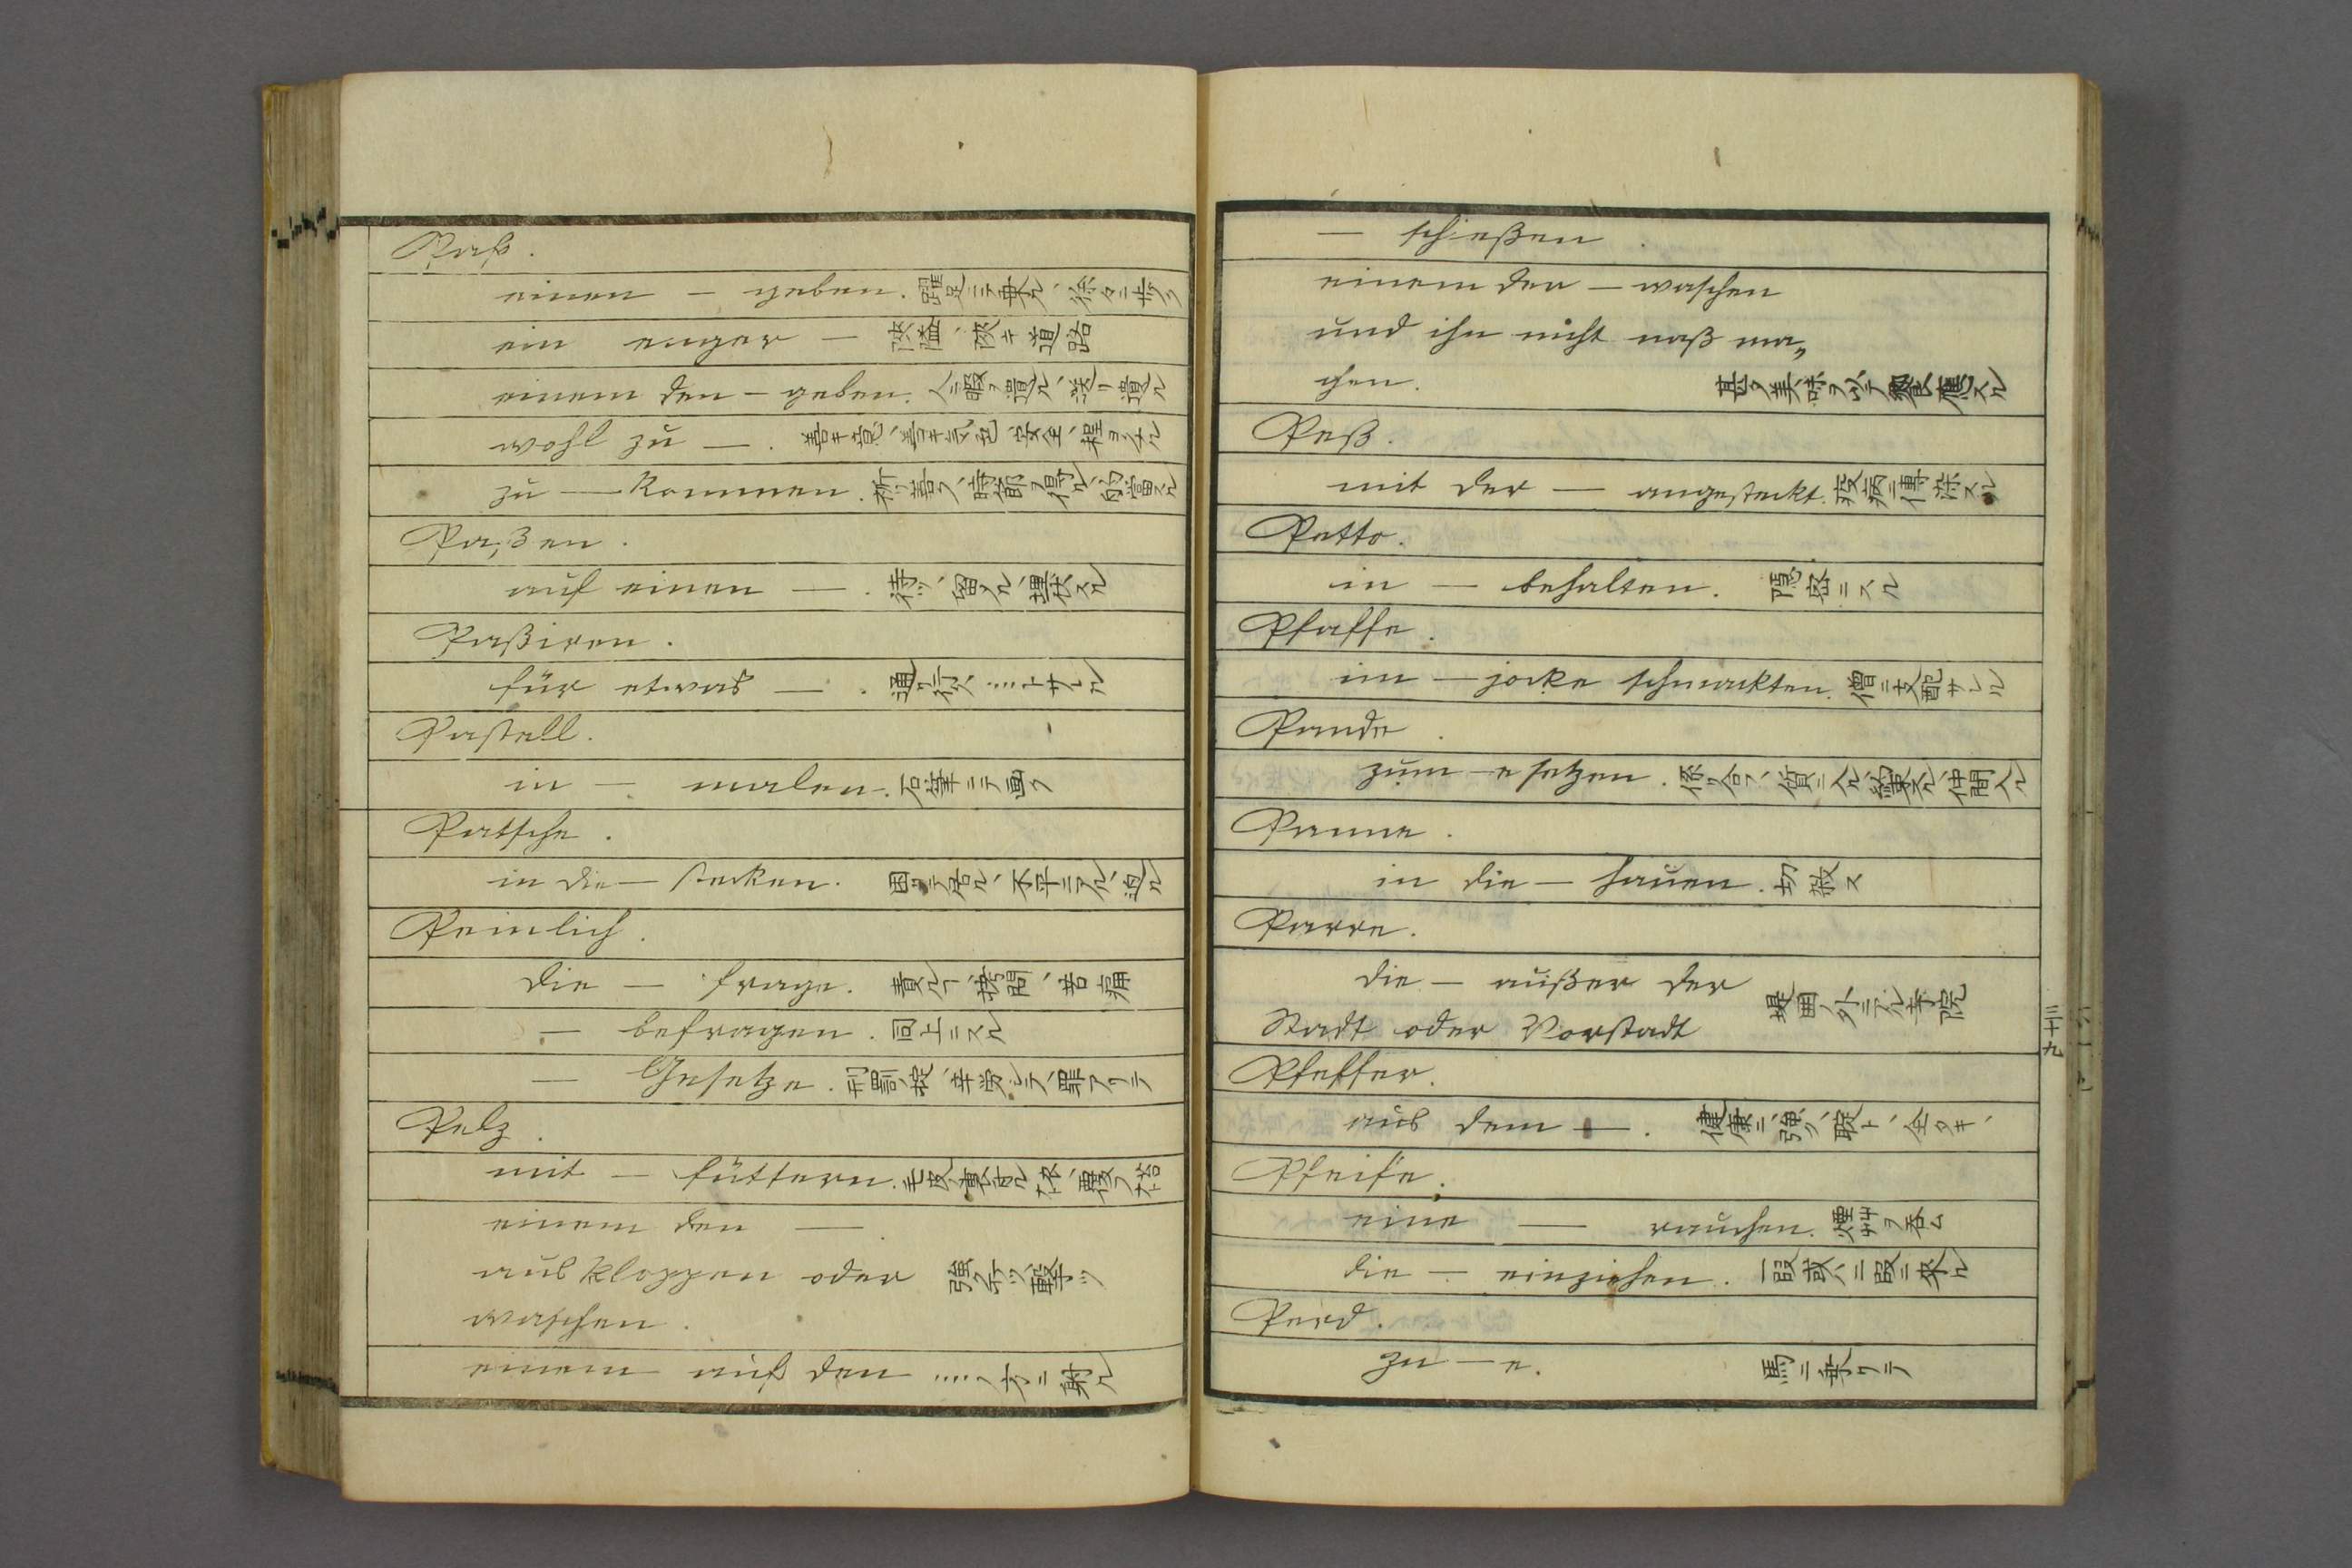 Paß.
einen — geben.
ein enger — 狭隘、狭キ道路
einem den — geben. 人ニ暇ヲ遣ル、送リ遣ル
wohl zu —. 善キ意、善キ気色、安全、程ヨクナル
zu — kommen. 時節ヲ得ル、的當スル
Paßen.
auf einen —. 待ツ、留メル、埋伏スル
Paßiren.
für etwas —. 通リ行ク、……トサレル
Pastell.
in — malen. 石筆ニテ画ク
Patsche.
in die — stecken. 困ツテ居ル、不平ニアル、迫ル
Peinlich.
die — frage. 責ルヿ、拷問、苦痛
— befragen. 同上ニスル
— Gesetze. 刑罰ノ掟、辛労シテ、罪アリテ
Pelz.
mit — füttern.
einem den —
ausklopfen oder 強ク打ツ、撃ツ
waschen.
einem auf den …..ノ方ニ射ル
— schießen.
einem den — waschen
und ihn nicht naß ma„
chen. 甚タ美味ヲ以テ饗應スル
Peß.
mit der — angesteckt. 疫病ニ傳染スル
Petto.
in — behalten. 隠密ニスル
Pfaffe.
im — jocke schmackten. 僧ニ支配サレル
Pande.
zum — e setzen. 係ツ合フ、質ニ入ル、約束スル、仲間入ル
Panne.
in die — hauen. 切殺ス
Parre.
die — außer der 堤囲ノ外ニアル寺院
Stadt oder Vorstadt
Pfeffer.
aus dem —. 健康ニ、強ク、堅ト、全タキ、
Pfeife.
eine — rauchen. 煙艸ヲ呑ム
die — einziehen. 一段或ハ二段ニ来ル
Perd.
zu — e. 馬ニ乗リテ
三十九